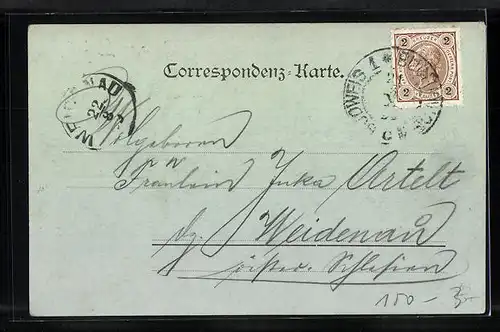 Correspondenz-Karte.
2 2
WEIDENAU
22
BUDWEIS 1
Wolgeboren
Fräulein Inka Artelt
Weidenau
österr. Schlesien
150 -